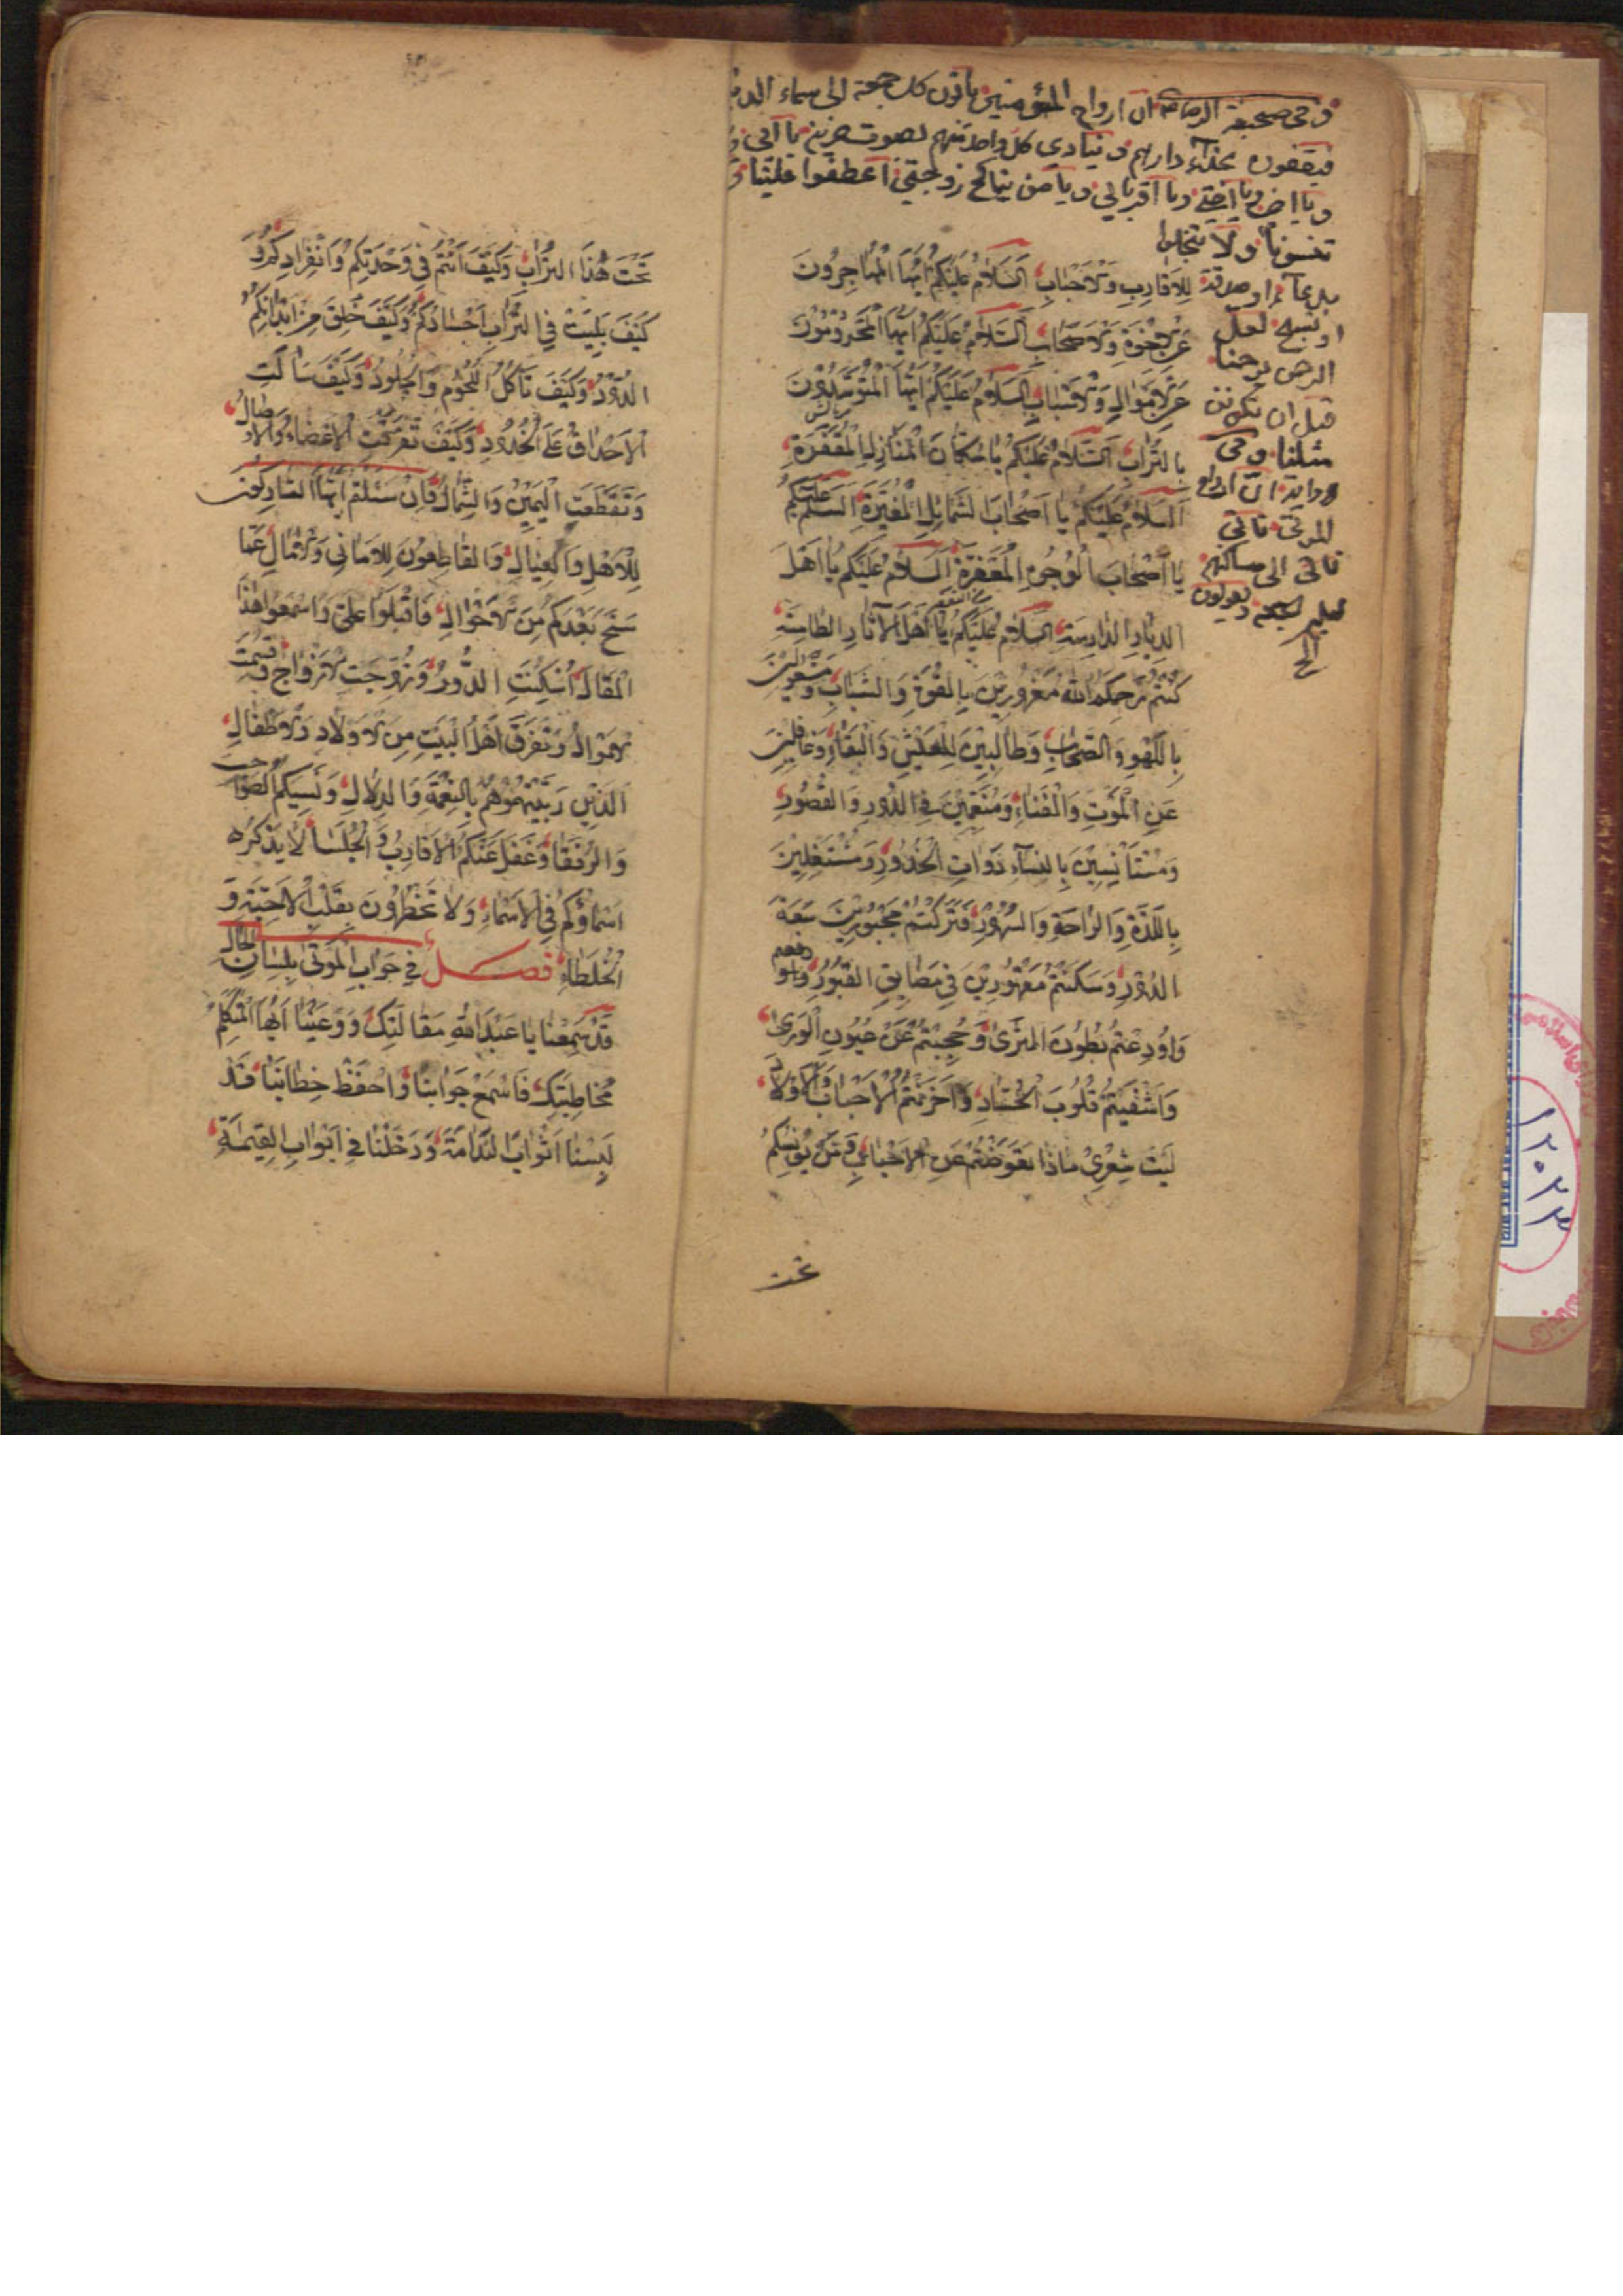 و فی صحیفة الرضا ان ارواح المؤمنین یاتون کل جمعة الی سماء الدنیا
فیقفون بحذاء دارهم و ینادی کل واحد منهم بصوت حزین یا اهلی و
و یا اخی و یا اختی و یا اقربائی و یا من نکح زوجتی اعطفوا علینا و
تنسونا و لا تبخلوا
بدعاء او صدقة
او تسبیح لعل
الرحمن یرحمنا
قبل ان تکونن
مثلنا و فی
روایة ان ارواح
الموتی تاتی
الی مساکنهم
و یقولون
الخ
لِلاَقارِبِ وَالاَحْبابِ اَلسَّلامُ عَلَیْکُمْ اَیُّهَا الْمُهاجِرُونَ
عَنِ الاِخْوَةِ وَالاَصْحابِ اَلسَّلامُ عَلَیْکُمْ اَیُّهَا الْمَحْرُومُونَ
عَنِ الاَمْوالِ وَالاَسْبابِ اَلسَّلامُ عَلَیْکُمْ اَیُّهَا الْمُتَوَسِّدُونَ
بِالتُّرابِ اَلسَّلامُ عَلَیْکُمْ یا سُکّانَ الْمَنازِلِ الْمُقْفَرَةِ
اَلسَّلامُ عَلَیْکُمْ یا اَصْحابَ الشَّمائِلِ الْمُغَیَّرَةِ اَلسَّلمُ عَلَیْکُمْ
یا اَصْحابَ الْوُجُوهِ الْمُعَفَّرَةِ اَلسَّلامُ عَلَیْکُمْ یا اَهْلَ
الدِّیارِ الدّارِسَةِ اَلسَّلامُ عَلَیْکُمْ یا اَهْلَ الاٰثارِ الطّامِسَةِ
کُنْتُمْ رَحِمَکُمُ اللهُ مَغْرُورِینَ بِالْقُوَّةِ وَالشَّبابِ وَمَشْعُولِینَ
بِاللَّهْوِ وَالصِّحابِ وَطالِبِینَ لِلْعَیْشِ وَالْبَقاءِ وَغافِلِینَ
عَنِ الْمَوْتِ وَالْفَناءِ وَمُتَنَعِّمِینَ فِی الدُّورِ وَالْقُصُورِ
وَمُسْتَاْنِسِینَ بِالنِّساءِ ذَواتِ الْخُدُورِ وَمُشْتَغِلِینَ
بِاللَّذَّةِ وَالرّاحَةِ وَالسُّرُورِ فَتَرَکْتُمْ مَجْبُورِینَ سَعَةَ
الدُّورِ وَسَکَنْتُمْ مَقْهُورِینَ فِی مَضایِقِ الْقُبُورِ
وَاُودِعْتُمْ بُطُونَ الثَّرٰی وَحُجِبْتُمْ عَنْ عُیُونِ الْوَرٰی
وَاَشْفَیْتُمْ قُلُوبَ الْحُسّادِ وَاَحْزَنْتُمُ الاَحْبابَ وَالاَوْلادَ
لَیْتَ شِعْرِی ماذا تَعَوَّضْتُمْ عَنِ الاَحْبابِ وَمَنْ یُونِسُکُمْ
تحت
تَحْتَ هٰذَا التُّرابِ وَکَیْفَ اَنْتُمْ فِی وَحْدَتِکُمْ وَانْفِرادِکُمْ وَ
کَیْفَ بَلِیَتْ فِی التُّرابِ اَجْسادُکُمْ وَکَیْفَ خُلِقَ مِنْ اَبْدانِکُمُ
الدُّودُ وَکَیْفَ تَاْکُلُ اللُّحُومَ وَالْجُلُودَ وَکَیْفَ سالَتِ
الاَحْداقُ عَلَی الْخُدُودِ وَکَیْفَ تَفَرَّقَتِ الاَعْضاءُ وَالاَوْصالُ
وَتَقَطَّعَتِ الْیَمِینُ وَالشِّمالُ فَاِنْ سَئَلْتُمْ اَیُّهَا التّارِکُونَ
لِلاَهْلِ وَالْعِیالِ وَالْقاطِعُونَ لِلاَمانِی وَالاٰمالِ عَمّا
سَنَحَ بَعْدَکُمْ مِنَ الاَحْوالِ فَاقْبَلُوا عَلَیَّ وَاسْمَعُوا هٰذَا
الْمَقالَ اُسْکِنَتِ الدُّورُ وَتَزَوَّجَتِ الاَزْواجُ وَقُسِّمَتِ
الاَمْوالُ وَتَفَرَّقَ اَهْلُ الْبَیْتِ مِنَ الاَوْلادِ وَالاَطْفالِ
الَّذِینَ رَبَّیْتُمُوهُمْ بِالنِّعْمَةِ وَالدَّلالِ وَنَسِیَکُمُ الصَّواحِبُ
وَالرُّفَقا وَغَفَلَ عَنْکُمُ الاَقارِبُ وَالْجُلَسا لا یَذْکُرُه
اَسْماؤُکُمْ فِی الاَسْماءِ وَلا تَخْطُرُونَ بِقَلْبِ الاَحِبَّةِ وَ
الْخُلَطاءِ فصل فِی جَوابِ الْمَوْتٰی بِلِسانِ الْحالِ
قَدْ سَمِعْنا یا عَبْدَ اللهِ مَقالَتَکَ وَوَعَیْنا اَیُّهَا الْمُتَکَلِّمُ
مُخاطَبَتَکَ فَاسْمَعْ جَوابَنا وَاحْفَظْ خِطابَنا قَدْ
لَبِسْنا اَثْوابَ النَّدامَةِ وَدَخَلْنا فِی اَبْوابِ الْقِیٰمَةِ
۱۲۰۲۳